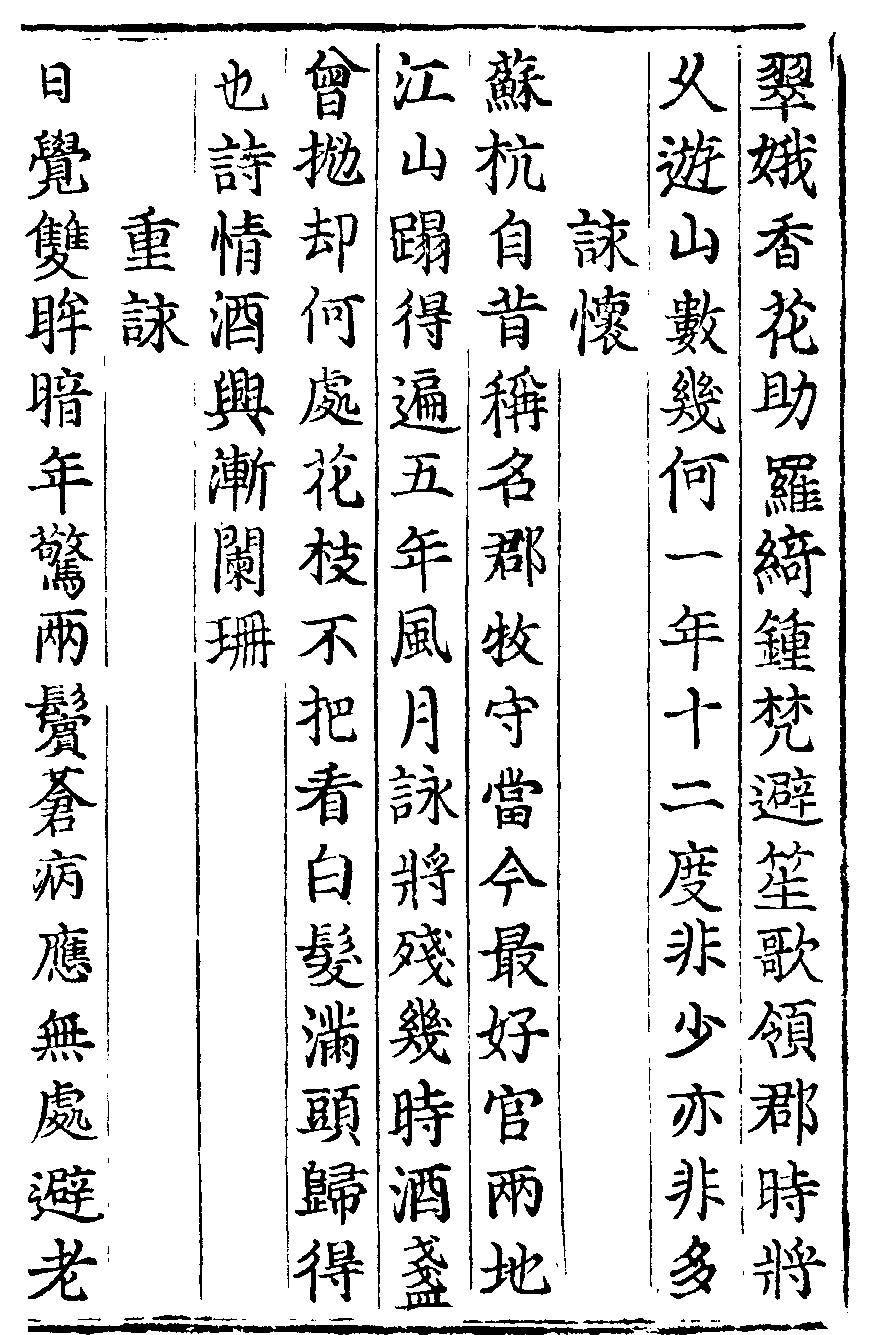 翠娥香花助羅綺鍾梵避笙歌領郡時將
乆遊山數幾何一年十二度非少亦非多
詠懷
蘇杭自昔稱名郡牧守當今最好官兩地
江山蹋得遍五年風月詠將殘幾時酒盞
曾拋却何處花枝不把看白髮滿頭歸得
也詩情酒興漸闌珊
重詠
日覺雙眸暗年驚兩鬢蒼病應無處避老